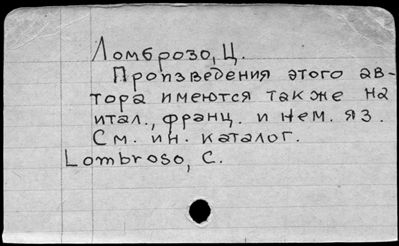 Ломброзо, Ц.
Произведения этого ав-
тора имеются также на
итал., франц. и нем. яз.
См. ин. каталог.
Lombroso, C.